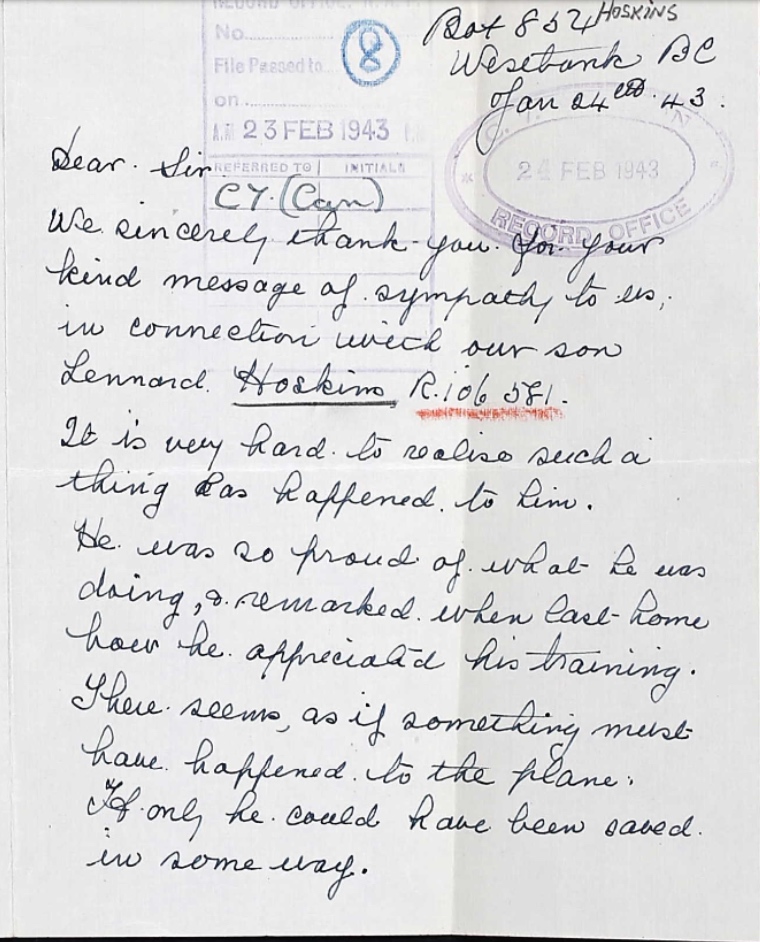 RECORD OFFICE, R.A.F.
HOSKINS
No.
8
Box 854
File Passed to
Westbank BC
on
Jan 24th. 43.
A.M. 23 FEB 1943
Dear. Sir
24 FEB 1943
RECORD OFFICE
REFERRED TO INITIALS
CY. (Can)
We sincerely thank-you. for your
kind message of. sympathy to us,
in connection with our son
Lennard. Hoskins, R.106 581.
It is very hard. to realise such a
thing has happened. to him.
He. was so proud. of. what he was
doing, & remarked. when last home
how he. appreciatd his training.
There. seems, as if something must
have. happened. to the plane.
If. only he. could have been saved.
in some way.